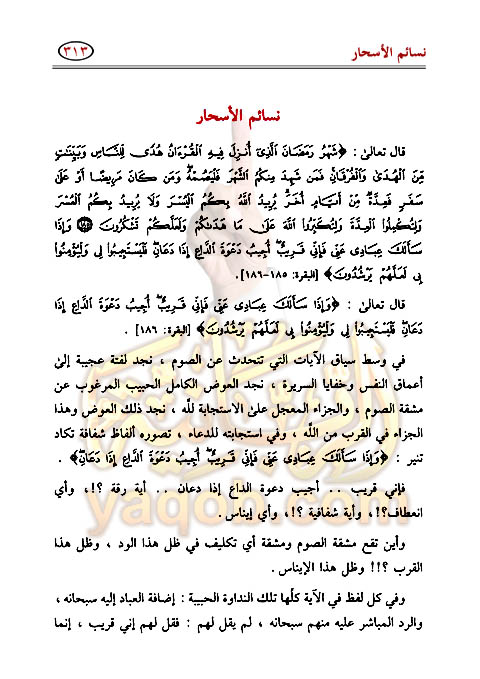 نسائم الأسحار
٣١٣
نسائم الأسحار
قال تعالىٰ : ﴿شَهْرُ رَمَضَانَ الَّذِي أُنزِلَ فِيهِ الْقُرْءَانُ هُدًى لِّلنَّاسِ وَبَيِّنَٰتٍ
مِّنَ الْهُدَىٰ وَالْفُرْقَانِ فَمَن شَهِدَ مِنكُمُ الشَّهْرَ فَلْيَصُمْهُ وَمَن كَانَ مَرِيضًا أَوْ عَلَىٰ
سَفَرٍ فَعِدَّةٌ مِّنْ أَيَّامٍ أُخَرَ يُرِيدُ اللَّهُ بِكُمُ الْيُسْرَ وَلَا يُرِيدُ بِكُمُ الْعُسْرَ
وَلِتُكْمِلُوا الْعِدَّةَ وَلِتُكَبِّرُوا اللَّهَ عَلَىٰ مَا هَدَىٰكُمْ وَلَعَلَّكُمْ تَشْكُرُونَ ۝١٨٥ وَإِذَا
سَأَلَكَ عِبَادِى عَنِّى فَإِنِّى قَرِيبٌ أُجِيبُ دَعْوَةَ الدَّاعِ إِذَا دَعَانِ فَلْيَسْتَجِيبُوا لِى وَلْيُؤْمِنُوا
بِى لَعَلَّهُمْ يَرْشُدُونَ﴾ [البقرة: ١٨٥-١٨٦].
قال تعالىٰ : ﴿وَإِذَا سَأَلَكَ عِبَادِى عَنِّى فَإِنِّى قَرِيبٌ أُجِيبُ دَعْوَةَ الدَّاعِ إِذَا
دَعَانِ فَلْيَسْتَجِيبُوا لِى وَلْيُؤْمِنُوا بِى لَعَلَّهُمْ يَرْشُدُونَ﴾ [البقرة: ١٨٦] .
في وسط سياق الآيات التي تتحدث عن الصوم ، نجد لفتة عجيبة إلىٰ
أعماق النفس وخفايا السريرة ، نجد العوض الكامل الحبيب المرغوب عن
مشقة الصوم ، والجزاء المعجل علىٰ الاستجابة للَّه ، نجد ذلك العوض وهذا
الجزاء في القرب من اللَّه ، وفي استجابته للدعاء ، تصوره ألفاظ شفافة تكاد
تنير : ﴿وَإِذَا سَأَلَكَ عِبَادِى عَنِّى فَإِنِّى قَرِيبٌ أُجِيبُ دَعْوَةَ الدَّاعِ إِذَا دَعَانِ﴾ .
فإني قريب .. أجيب دعوة الداع إذا دعان .. أية رقة ؟!، وأي
انعطاف؟!، وأية شفافية ؟!، وأي إيناس .
وأين تقع مشقة الصوم ومشقة أي تكليف في ظل هذا الود ، وظل هذا
القرب ؟!! وظل هذا الإيناس .
وفي كل لفظ في الآية كلّها تلك النداوة الحبيبة : إضافة العباد إليه سبحانه ،
والرد المباشر عليه منهم سبحانه ، لم يقل لهم : فقل لهم إني قريب ، إنما
yaqob.com